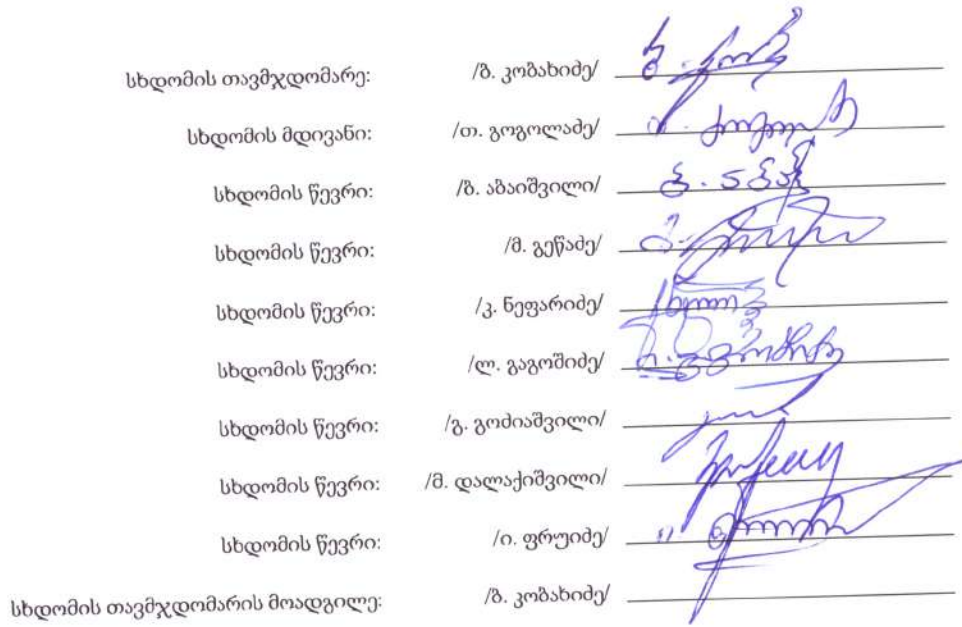 სხდომის თავმჯდომარე: /ბ. კობახიძე/
სხდომის მდივანი: /თ. გოგოლაძე/
სხდომის წევრი: /ბ. აბაიშვილი/
სხდომის წევრი: /მ. გეწაძე/
სხდომის წევრი: /კ. ნეფარიძე/
სხდომის წევრი: /ლ. გაგოშიძე/
სხდომის წევრი: /გ. გოძიაშვილი/
სხდომის წევრი: /მ. დალაქიშვილი/
სხდომის წევრი: /ი. ფრუიძე/
სხდომის თავმჯდომარის მოადგილე: /ბ. კობახიძე/